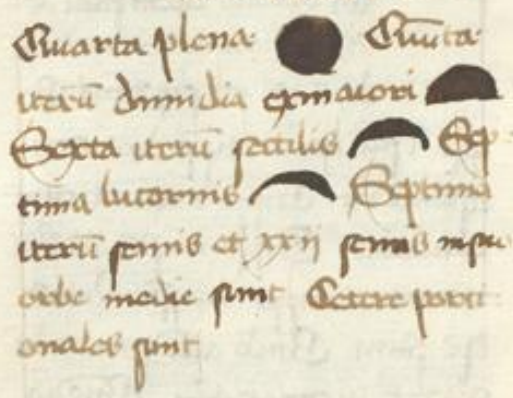 Quarta plena. Quīta.
iterū dimidia ex maiori
Sexta iterū sectilis Sep
tima lucornis Septima
iterū semis et xxij semis in suo
orbe medie sunt Cetere porci
onales sunt